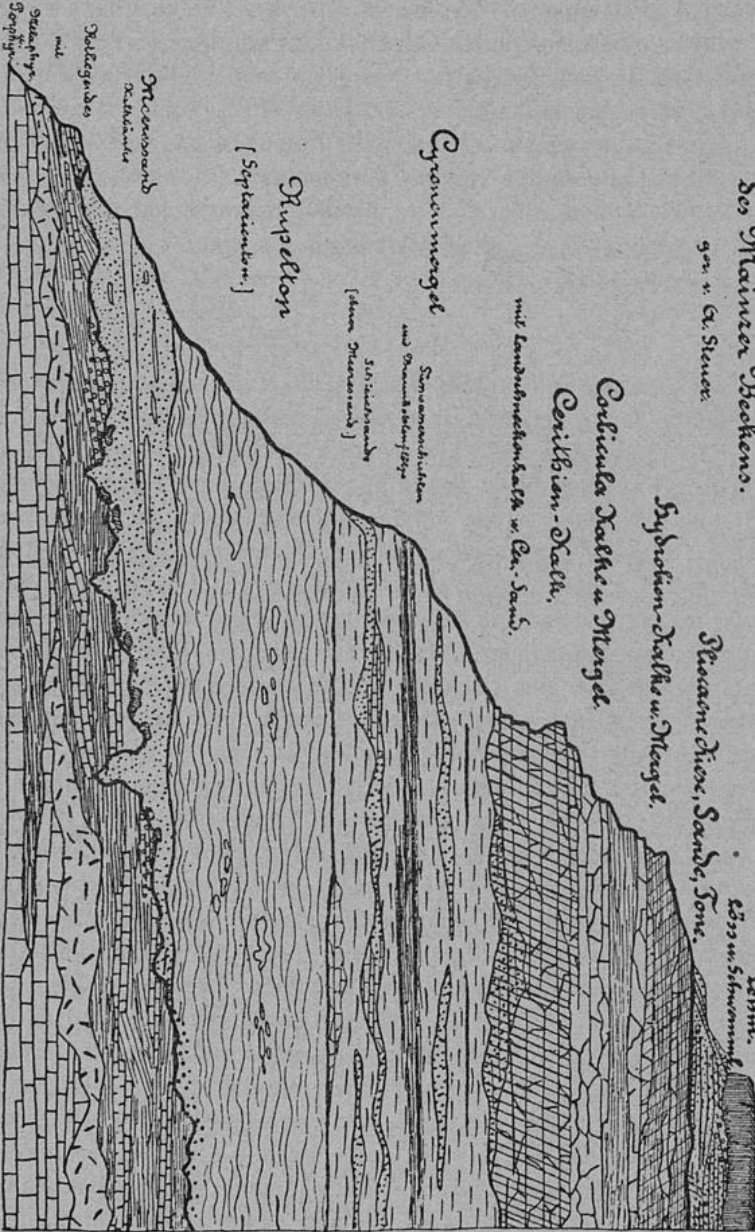 des Mainzer Beckens.
gez. v. A. Steuer.
Löss u. Schwemml
Lehm.
Pliocaene Kiese, Sande, Tone.
Hydrobien-Kalke u. Mergel.
Corbicula Kalke u Mergel.
Cerithien-Kalk,
mit Landschneckenkalk u. Cer.-Sand.
Cyrenenmergel
Süsswasserschichten
und Braunkohlenflötze
Schleichsande
[oberer Meeressand]
Rupelton
[Septarienton.]
Meeressand
Kalkbänke
Rotliegendes
mit
Melaphyr
u.
Porphyr.